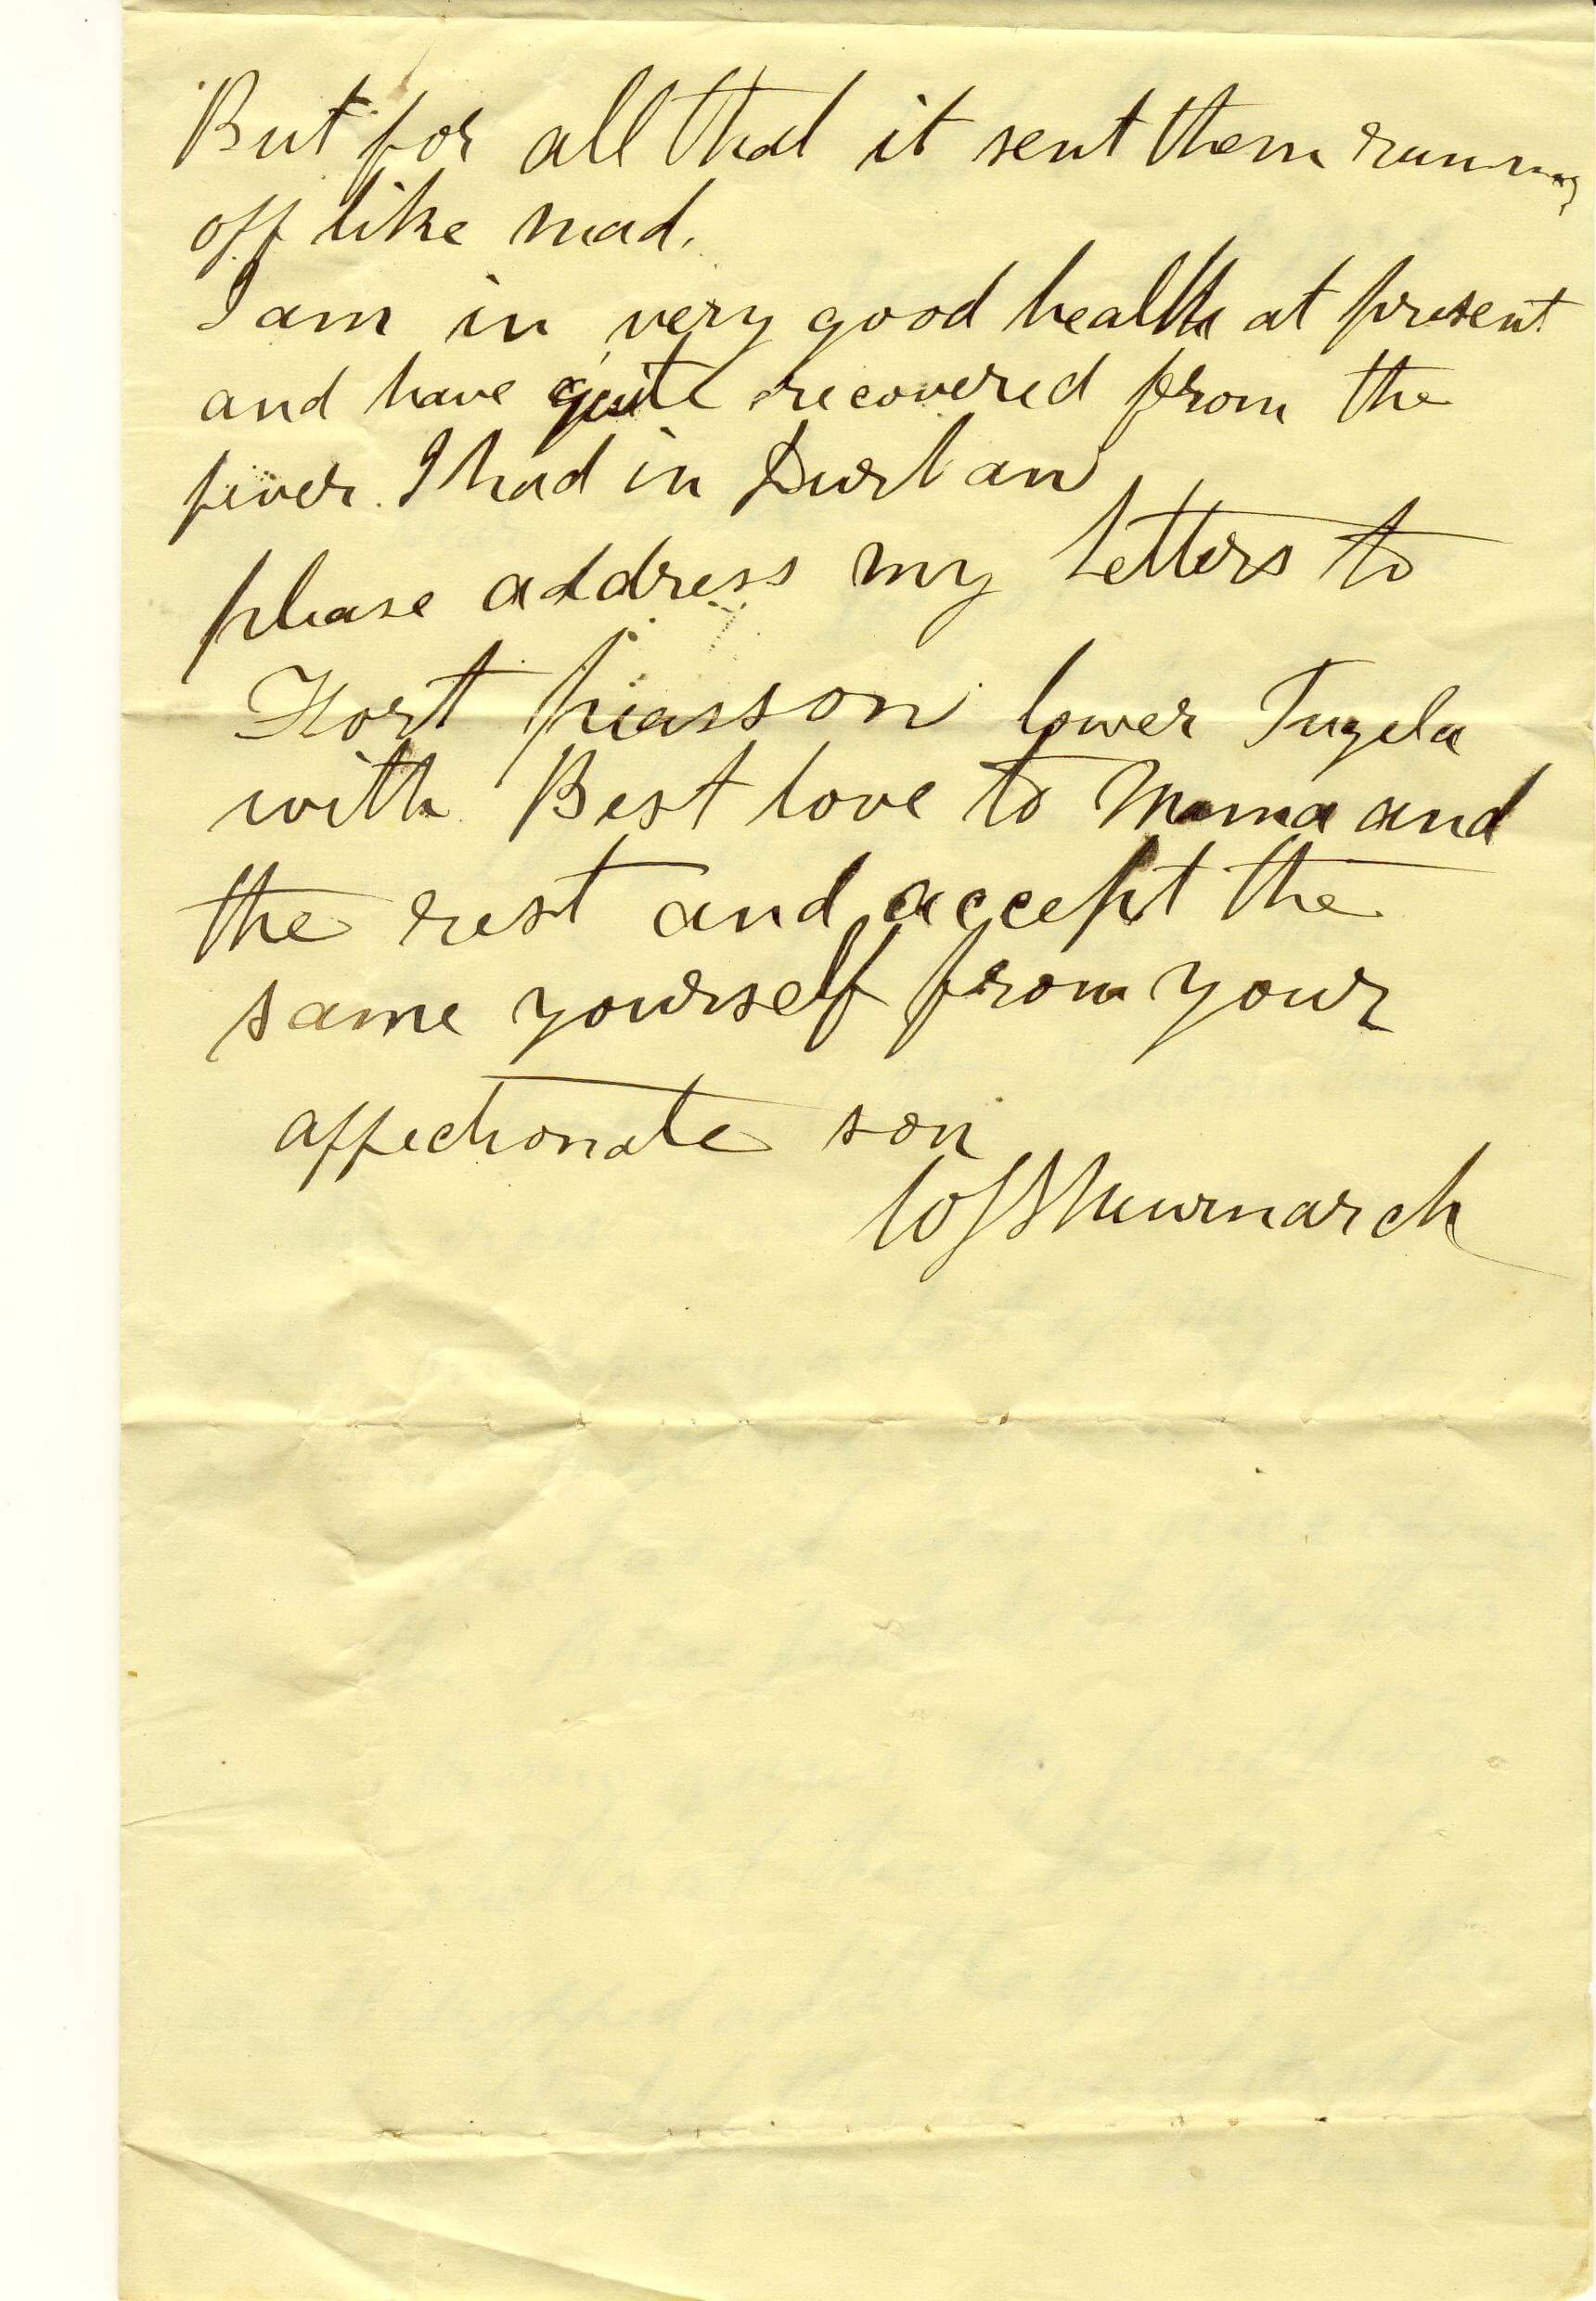 But for all that it sent them running
off like mad.
I am in very good health at present
and have quite recovered from the
fever. I had in Durban
please address my letters to
Fort piasson lower Tugela
with Best love to Mama and
the rest and accept the
same yourself from your
affectionate son